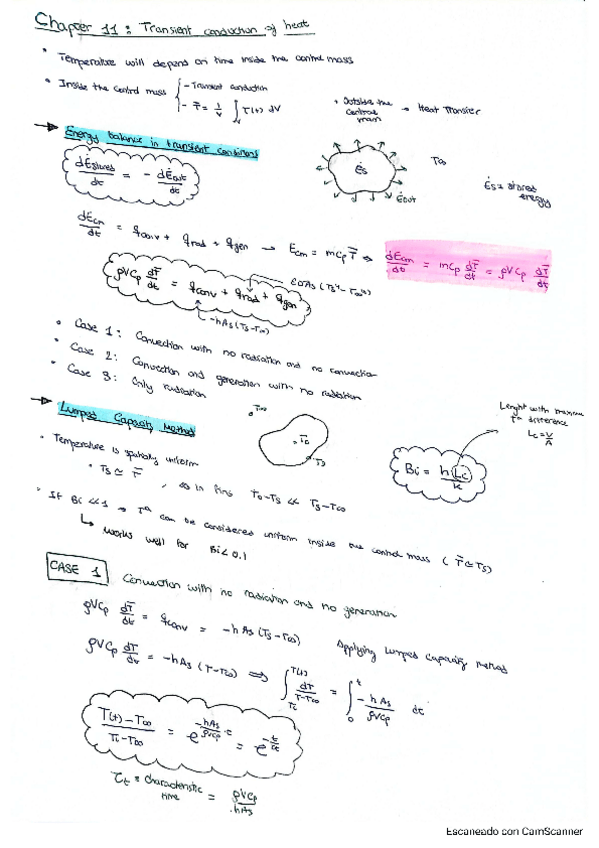 Chapter 11: Transient conduction of heat
• Temperature will depend on time inside the control mass
• Inside the control mass { - Transient conduction
- T̄ = 1/V ∫ T(t) dV
• Outside the control mass → Heat Transfer
→ Energy balance in transient conditions
dEstored/dt = - dEout/dt
Ės
T∞
Ėout
Ės =
energy
dEcm/dt = qconv + qrad + qgen → Ecm = mcp T̄ ⇒ dEcm/dt = mcp dT̄/dt = ρVCp dT̄/dt
ρVCp dT̄/dt = qconv + qrad + qgen
-hAs(Ts-T∞)
• Case 1: Convection with no radiation and no convection
• Case 2: Convection and generation with no radiation
• Case 3: Only radiation
→ Lumped Capacity Method
T∞
T0
Ts
Lenght with maximum Tª difference
Lc = V/A
• Temperature is spatially uniform
• Ts ≃ T̄, ⇔ in fins T0-Ts ≪ Ts-T∞
Bi = hLc/k
• If Bi ≪ 1 ⇒ Tª can be considered uniform inside the control mass (T̄ ≃ Ts)
↳ Works well for Bi < 0.1
CASE 1 Convection with no radiation and no generation
ρVCp dT̄/dt = qconv = -hAs(Ts-T∞) Applying lumped capacity method
ρVCp dT/dt = -hAs(T-T∞) ⟹ ∫ Ti T(t) dT/T-T∞ = ∫ 0 t -hAs/ρVCp dt
T(t)-T∞/Ti-T∞ = e^(-hAs/ρVCp t) = e^(-t/τt)
τt = characteristic time = ρVCp/hAs
Escaneado con CamScanner